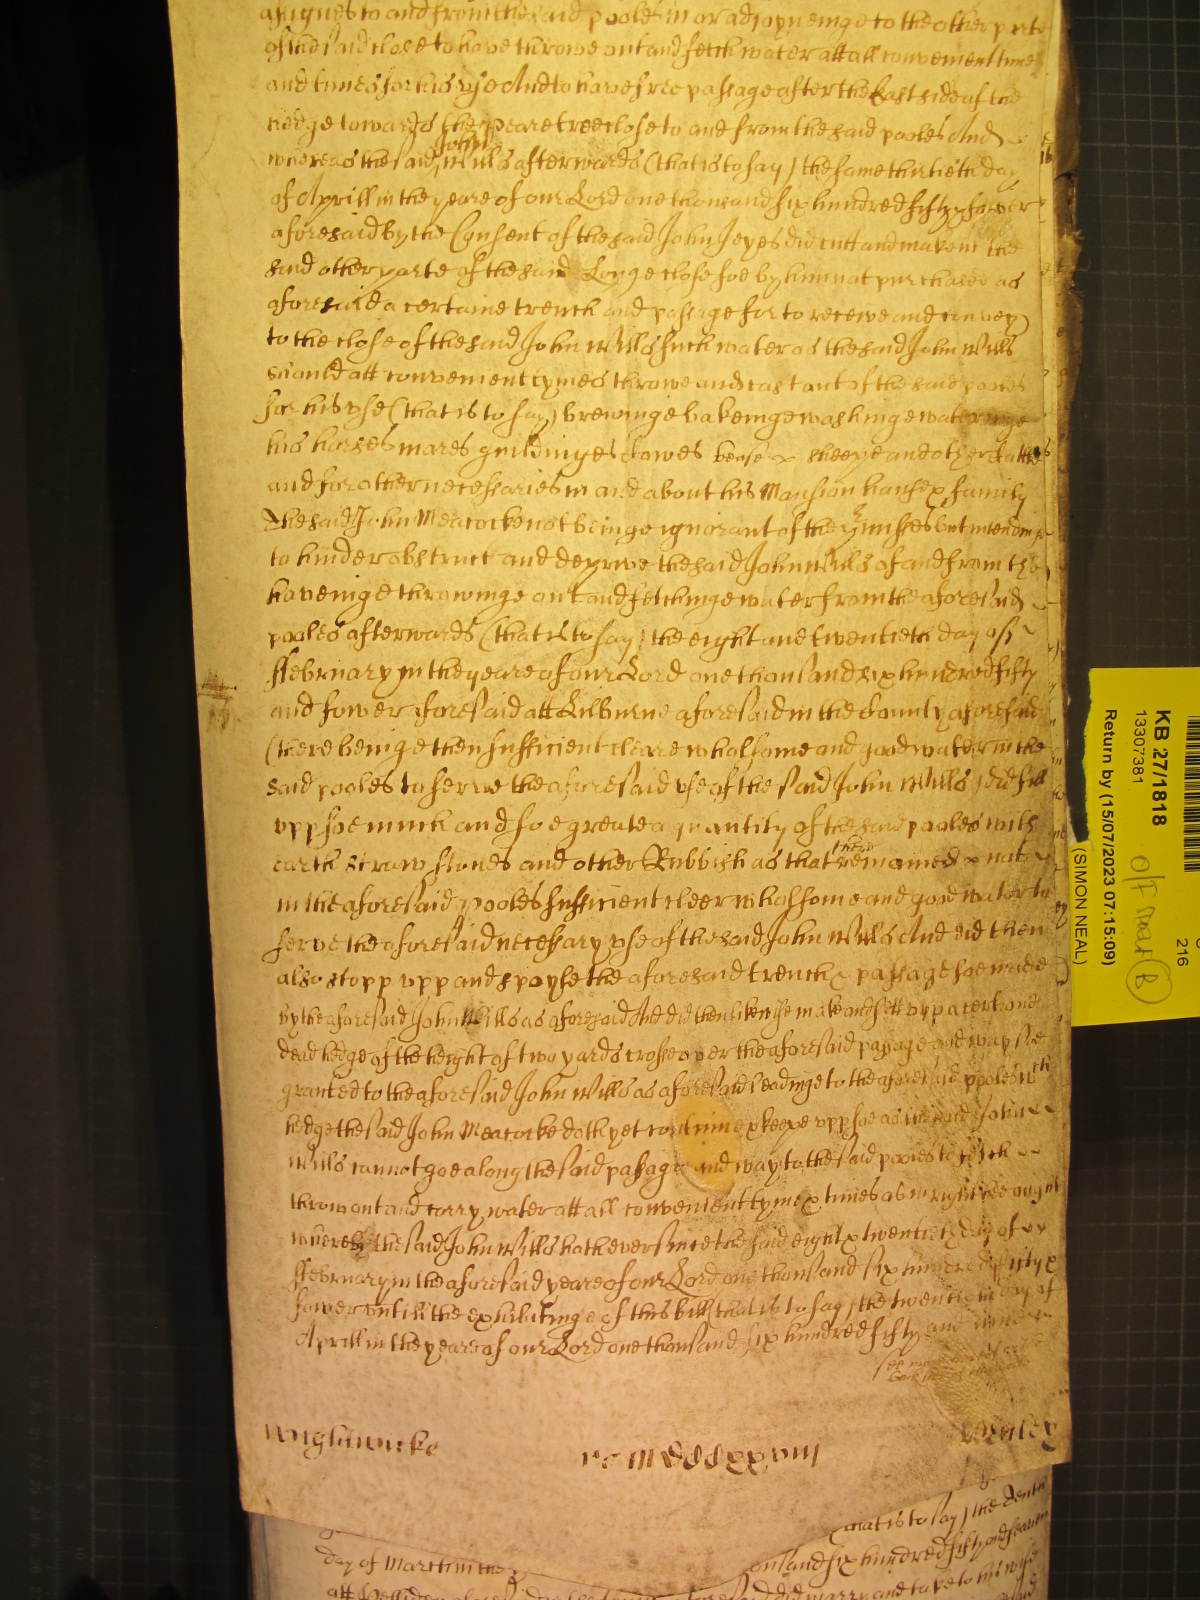 assignes to and from the said pooles in or adjoyneinge to the other parte
of the said close to have throwe out and fetch water att all convenient time
and times for his use And to have free passage after the East side of the
hedge towards the Pearetree close to and from the said pooles And
whereas the said John Wills afterwards (that is to say) the same thirtieth day
of Aprill in the yeare of our Lord one thousand six hundred fifty fower
aforesaid by the Consent of the said John Jeyes did cutt and make in the
said other parte of the said Longe close soe by him not purchased as
aforesaid a certaine trench and passage for to receive and convey
to the close of the said John Wills such water as the said John Wills
should att convenient tymes throwe and cast out of the said pooles
for his use (that is to say) brewinge bakeinge washinge wateringe
his horses mares gueldinges Cowes bease & sheepe and other Cattle
and for other necessaries in and about his Mansion house & family
The said John Meacocke not beinge ignorant of the p'misses but intendinge
to hinder obstruct and deprive the said John Wills of and from the
haveinge throwinge out and fetchinge water from the aforesaid
pooles afterwards (that is to say) the eight and twentieth day of
ffebruary in the yeare of our Lord one thousand six hundred fifty
and fower aforesaid att Kilburne aforesaid in the County aforesaid
(there beinge then sufficient cleare wholsome and good water in the
said pooles to serve the aforesaid use of the said John Wills) did fill
upp soe much and soe greate a quantity of the said pooles with
earth straw stones and other Rubbish as that there remained not
in the aforesaid pooles sufficient cleer wholsome and good water to
serve the aforesaid necessary use of the said John Wills And did then
also stopp upp and spoyle the aforesaid trench & passage soe made
by the aforesaid John Wills as aforesaid And did then likewise make and sett upp a certaine
dead hedge of the height of two yards crosse over the aforesaid passage and way soe
granted to the aforesaid John Wills as aforesaid leadinge to the aforesaid pooles wch
hedge the said John Meacocke doth yet continue & keepe upp soe as the said John
Wills cannot goe along the said passage and way to the said pooles to fetch
throw out and carry water att all convenient tyme & times as in right hee ought
whereby the said John Wills hath ever since the said eight & twentieth day of
ffebruary in the aforesaid yeare of our Lord one thousand six hundred fifty &
fower untill the exhibitinge of this bill (that is to say) the twentieth day of
Aprill in the yeare of our Lord one thousand six hundred fifty and nine
see more
(that is to say) the tenth
day of March in the
thousand six hundred fifty and seaven
did marry and take to his wife
KB 27/1818
13307381
Return by (15/07/2023 07:15:09)
(SIMON NEAL)
216